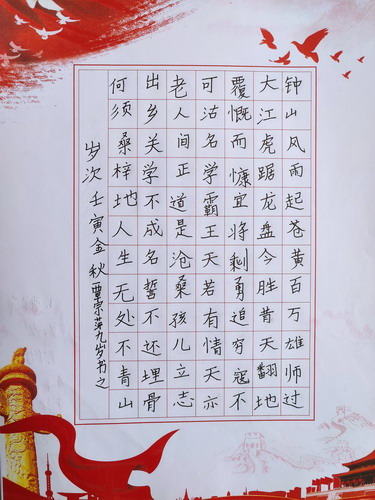 钟山风雨起苍黄百万雄师过
大江虎踞龙盘今胜昔天翻地
覆慨而慷宜将剩勇追穷寇不
可沽名学霸王天若有情天亦
老人间正道是沧桑孩儿立志
出乡关学不成名誓不还埋骨
何须桑梓地人生无处不青山
岁次壬寅金秋覃宗萍九岁书之